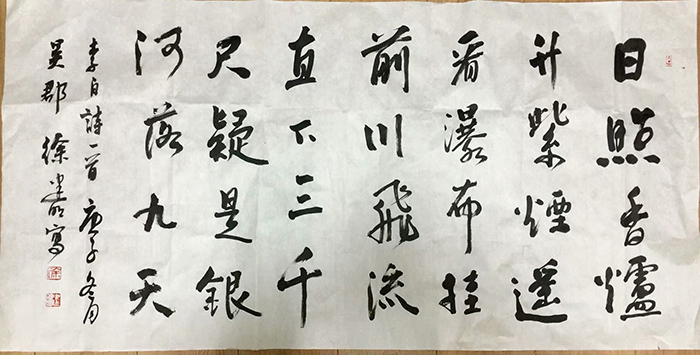 日照香爐
升紫煙遥
看瀑布挂
前川飛流
直下三千
尺疑是銀
河落九天
李白詩一首庚子冬月
吴郡徐寫